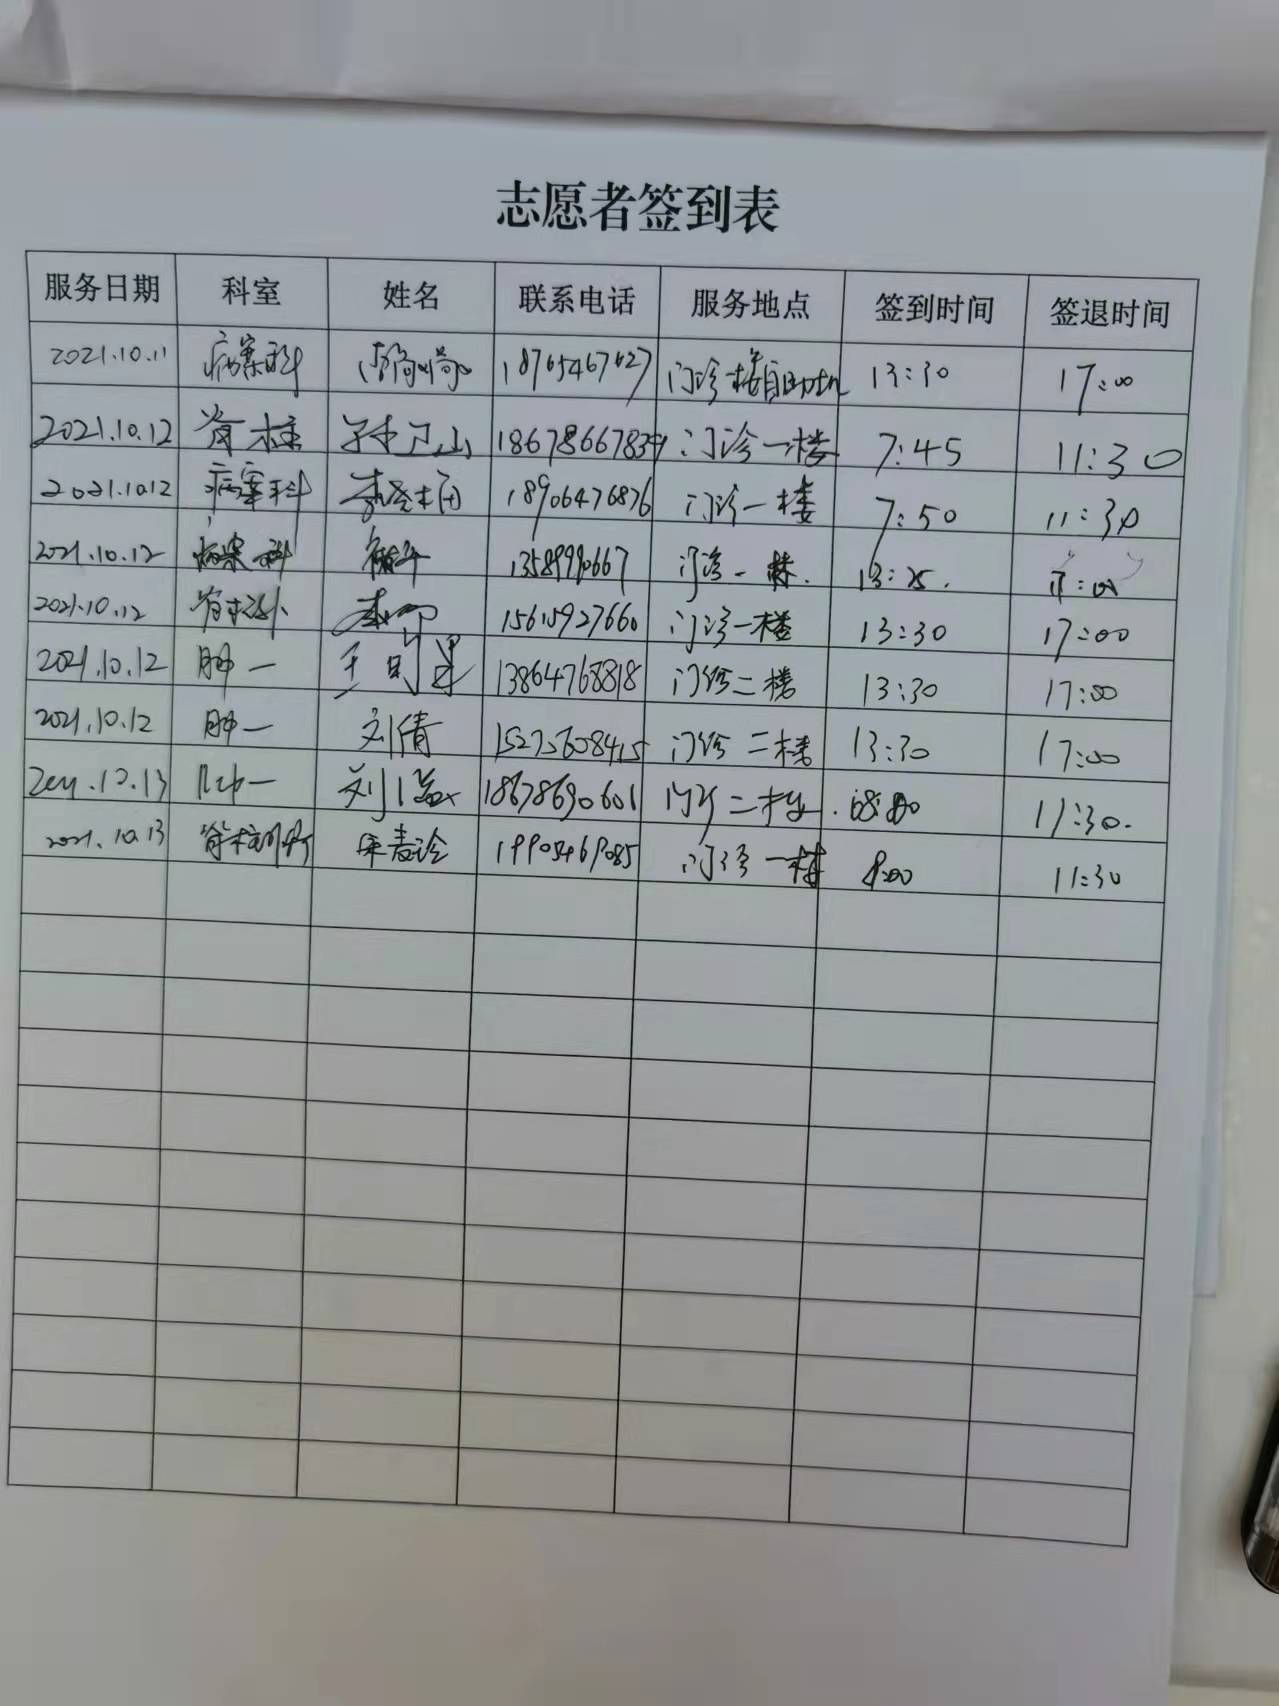 志愿者签到表
服务日期 科室 姓名 联系电话 服务地点 签到时间 签退时间
2021.10.11 病案科 门诊一楼自助机 13:30 17:00
2021.10.12 脊柱 孙卫山 门诊一楼 7:45 11:30
2021.10.12 病案科 18906476876 门诊一楼 7:50 11:30
2021.10.12 病案科 门诊一楼. 13:25. 17:00
2021.10.12 脊柱外 15615927660 门诊一楼 13:30 17:00
2021.10.12 肿一 13864768818 门诊二楼 13:30 17:00
2021.10.12 肿一 刘倩 15275608415 门诊二楼 13:30 17:00
2021.10.13 肿一 18678690601 门诊二楼. 11:30.
2021.10.13 门诊一楼 8:00 11:30